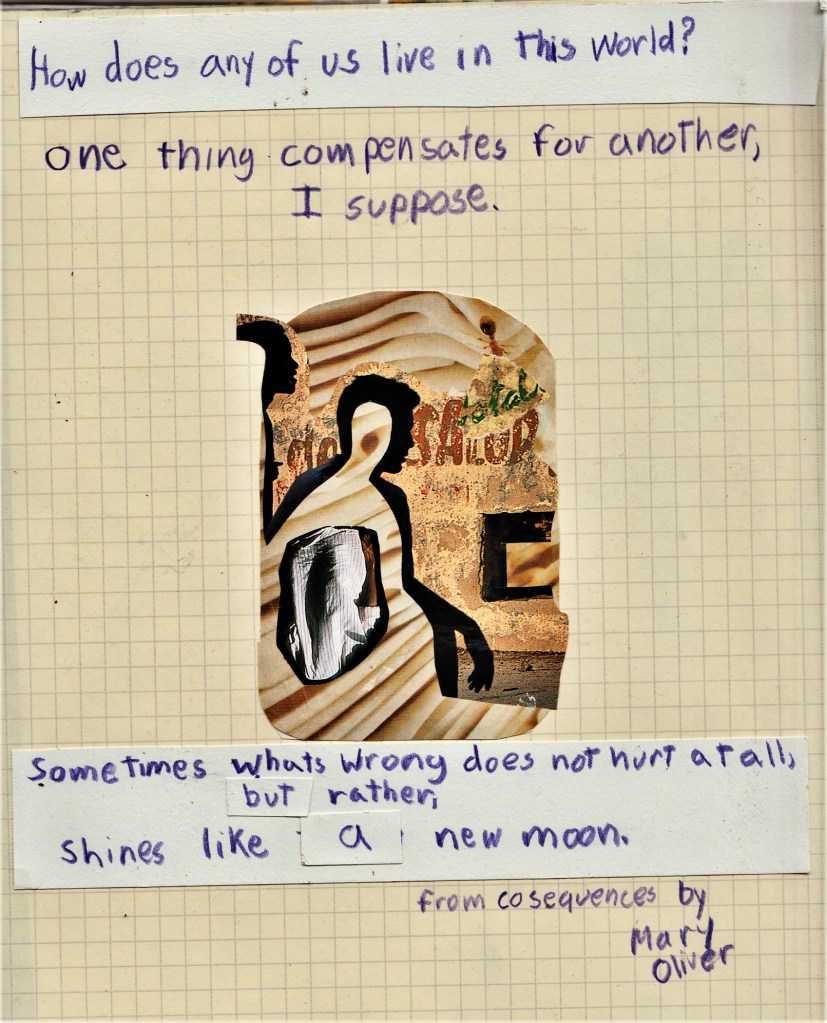 How does any of us live in this world?
one thing compensates for another,
I suppose.
SALUD
Sometimes whats wrong does not hurt at all,
but rather,
shines like a new moon.
from cosequences by
Mary
Oliver